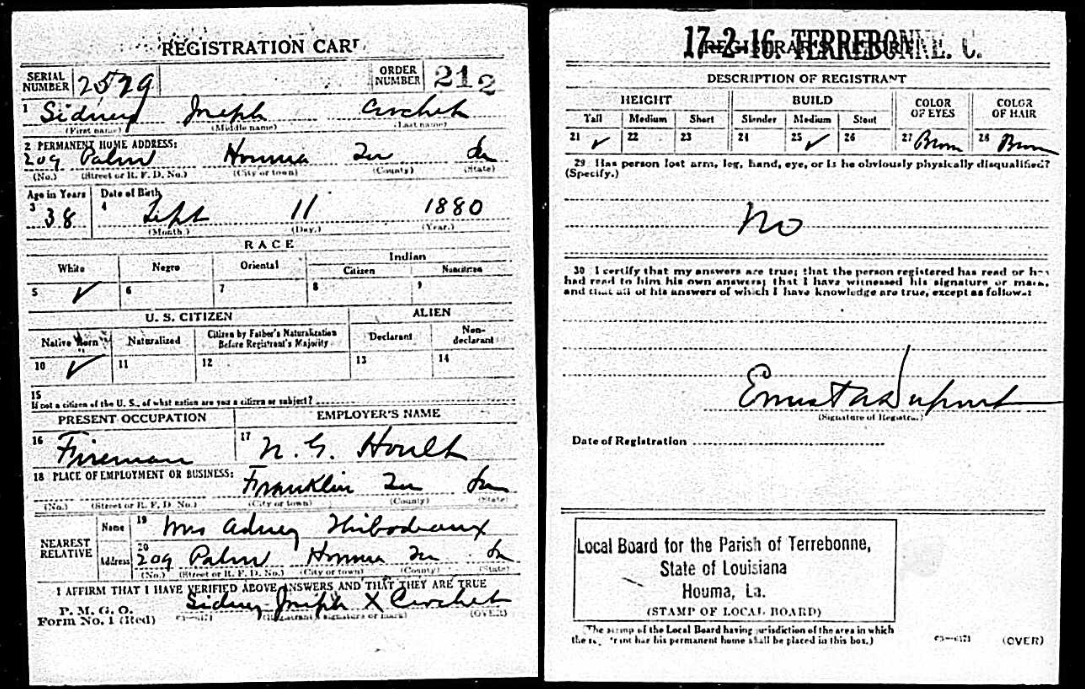 REGISTRATION CARD
SERIAL NUMBER 2579 ORDER NUMBER 212
1 Sidney Joseph Crochet
(First name) (Middle name) (Last name)
2 PERMANENT HOME ADDRESS:
209 Palm Houma La
(No.) (Street or R. F. D. No.) (City or town) (County) (State)
Age in Years Date of Birth
3 38 4 Sept 11 1880
(Month.) (Day.) (Year.)
RACE
White Negro Oriental Indian
Citizen Noncitizen
5 ✓ 6 7 8 9
U. S. CITIZEN ALIEN
Native Born Naturalized Citizen by Father's Naturalization Before Registrant's Majority Declarant Non-declarant
10 ✓ 11 12 13 14
15
If not a citizen of the U. S., of what nation are you a citizen or subject?
PRESENT OCCUPATION EMPLOYER'S NAME
16 Fireman 17 N. G. Hoult
18 PLACE OF EMPLOYMENT OR BUSINESS:
Franklin La
(No.) (Street or R. F. D. No.) (City or town) (County) (State)
NEAREST RELATIVE
Name 19 Mrs Thibodeaux
Address 20 209 Palm Houma La
(No.) (Street or R. F. D. No.) (City or town) (County) (State)
I AFFIRM THAT I HAVE VERIFIED ABOVE ANSWERS AND THAT THEY ARE TRUE
P. M. G. O.
Form No. 1 (Red)
Sidney Joseph X Crochet
(Registrant's signature or mark) (OVER)
17-2-16. TERREBONNE. C.
REGISTRAR'S REPORT
DESCRIPTION OF REGISTRANT
HEIGHT BUILD COLOR OF EYES COLOR OF HAIR
Tall Medium Short Slender Medium Stout
21 ✓ 22 23 24 25 ✓ 26 27 Brown 28 Brown
29 Has person lost arm, leg, hand, eye, or is he obviously physically disqualified?
(Specify.)
No
30 I certify that my answers are true; that the person registered has read or has
had read to him his own answers; that I have witnessed his signature or mark,
and that all of his answers of which I have knowledge are true, except as follows:
(Signature of Registrar)
Date of Registration
Local Board for the Parish of Terrebonne,
State of Louisiana
Houma, La.
(STAMP OF LOCAL BOARD)
(The stamp of the Local Board having jurisdiction of the area in which
the registrant has his permanent home shall be placed in this box.)
(OVER)